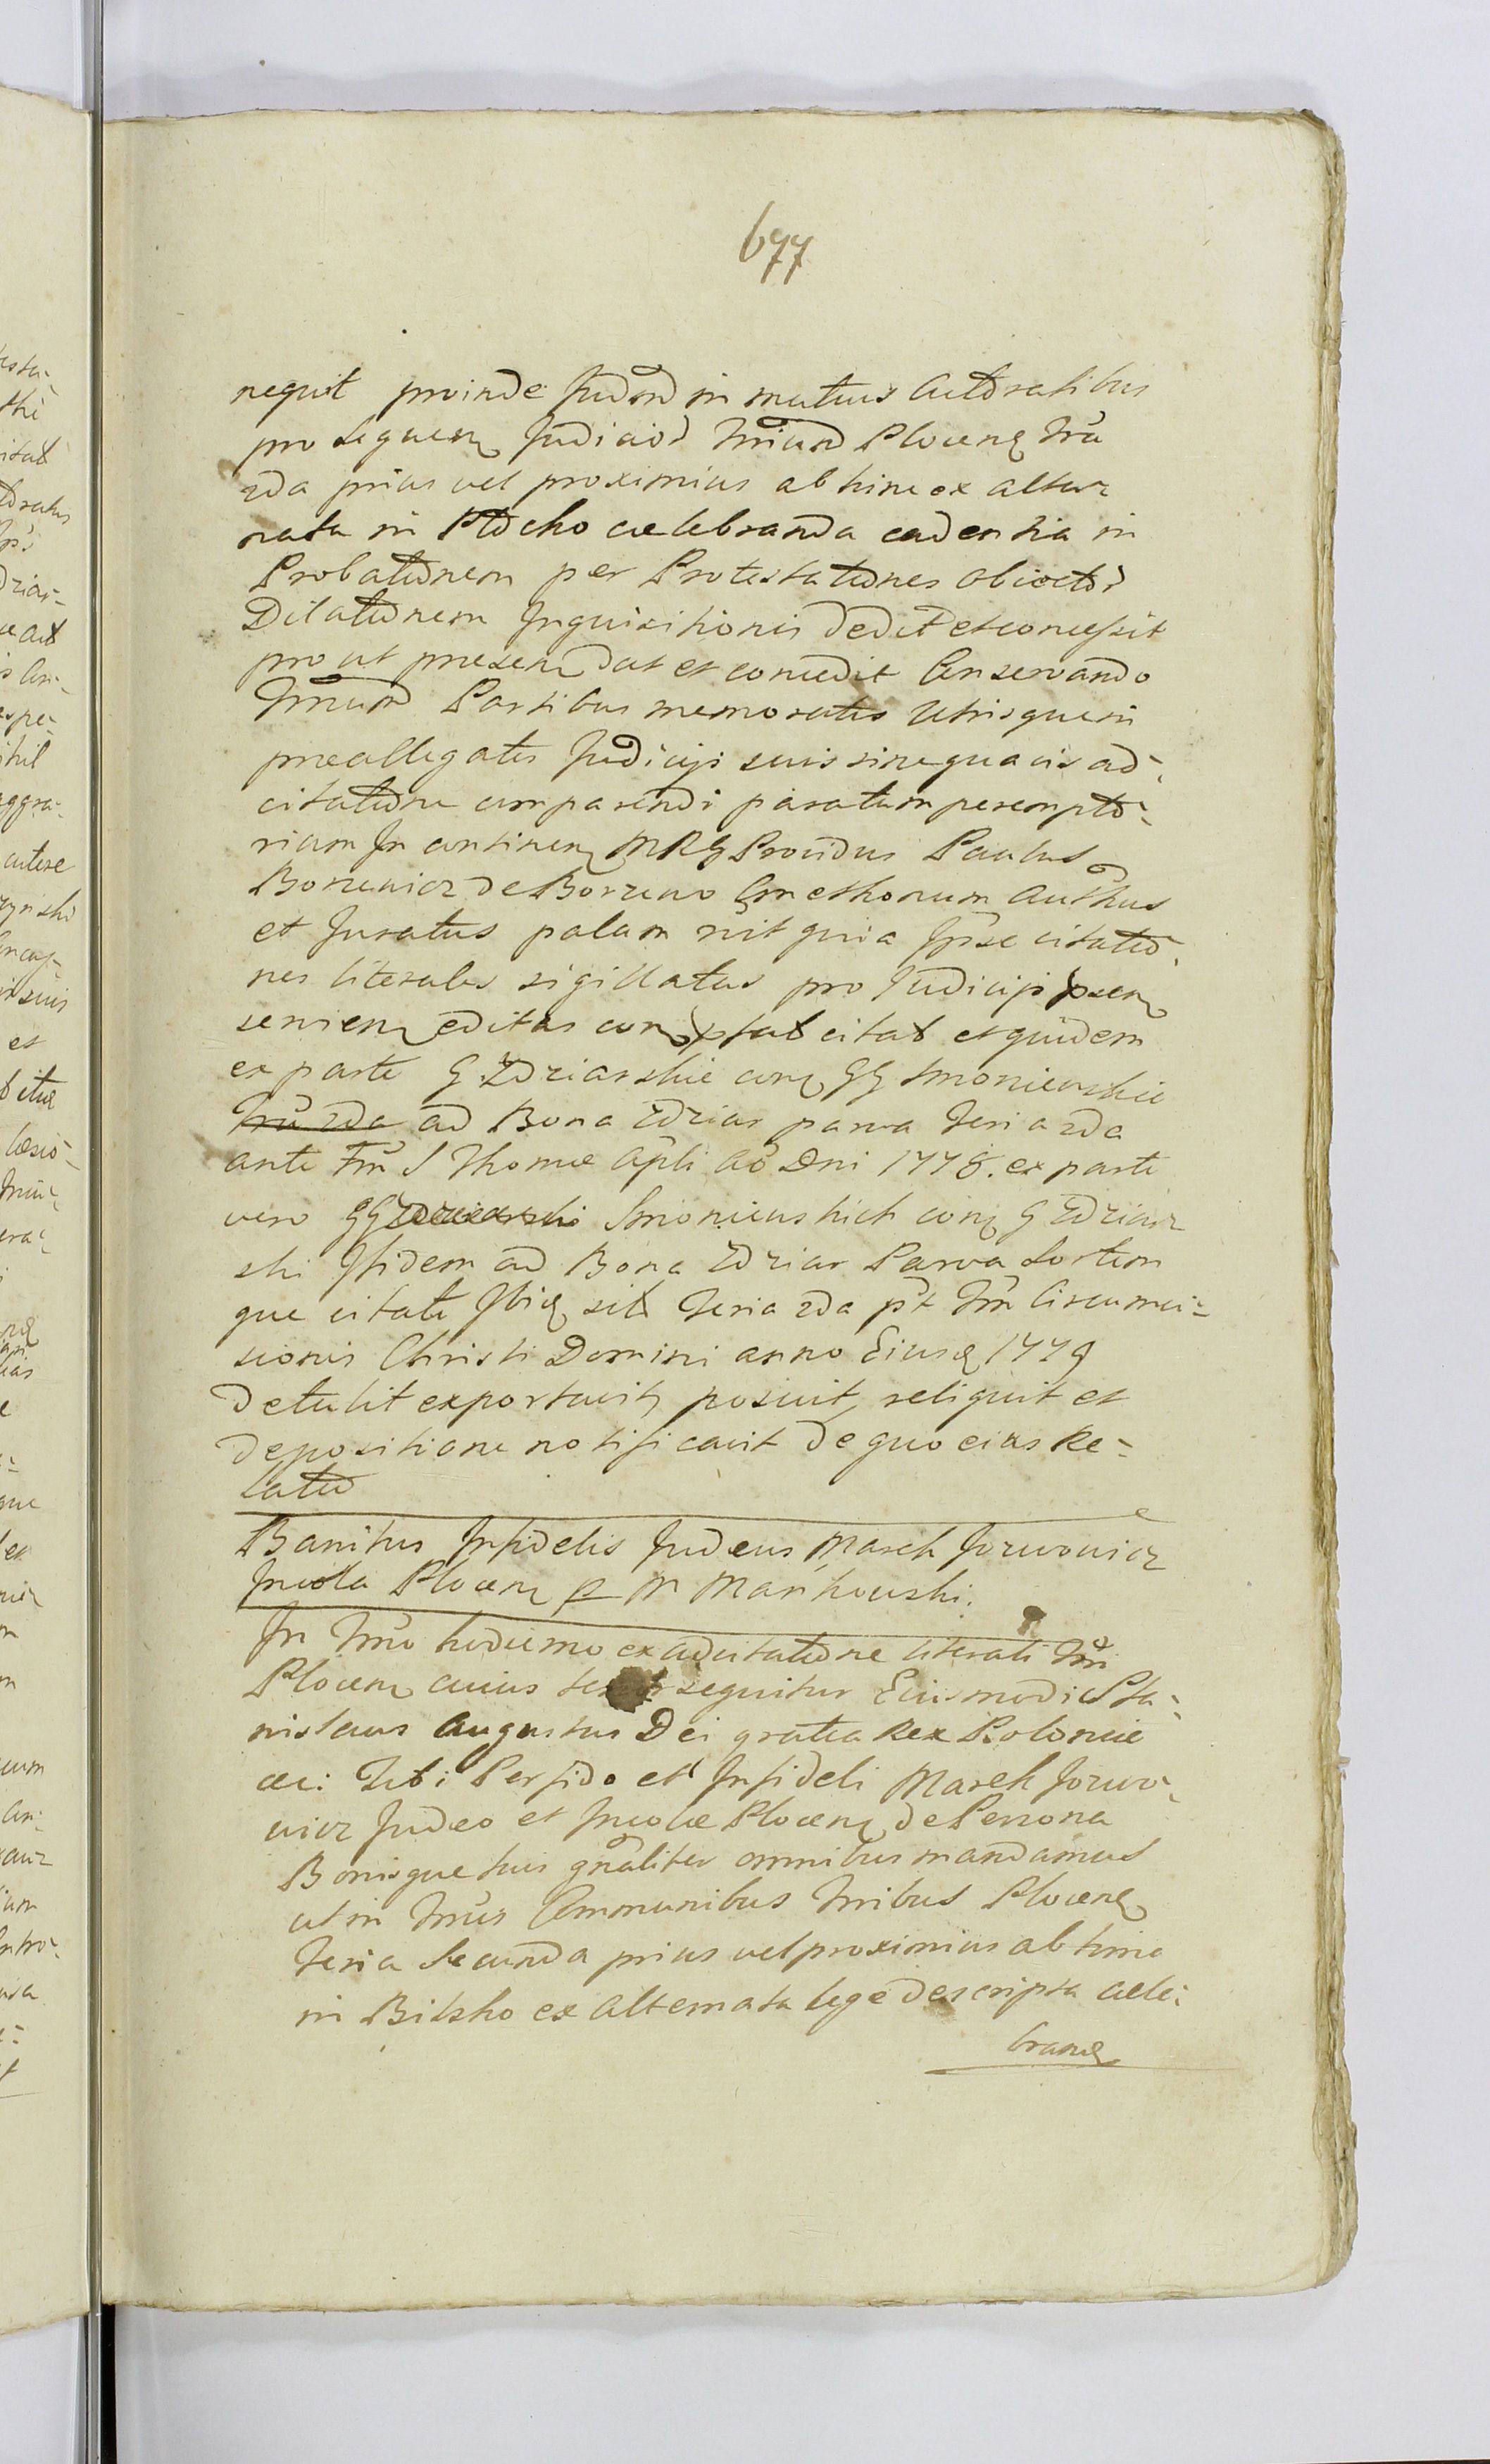 677
nequit proinde Judm in mutuis Actoratibus
pro sequen Judicior Trium Plocen Fria
2da prius vel proximius ab hinc ex alter
nata in Plocko celebranda cadentia in
Probationem per Protestationes obiector
Dilationem Inquisitionis dedit et concessit
pro ut presen dat et concedit Conservando
Trium Partibus memoratis Utrisque in
preallegatis Judicijs suis sine quavis ad-
citatione comparendi paratum perempto-
rium In continen MRG Providus Paulus
Borzewicz de Borzewo Cmethonum authus
et Juratus palam rnt quia Ipse citatio-
nes literales sigillatas pro Judicijs psen
servien editas con ptas citas et quidem
ex parte G Zdziarskie con GG Smoniewskie
Fria 2da ad Bona Zdziar parva Feria 2da
ante Fm S Thomæ Apli Ao Dni 1778. ex parte
vero GG Zdziarski Smoniewskich con G Zdziar
ski Ibidem ad Bona Zdziar Parva Sortem
que citate Ibiq sit Feria 2da pt Fm Circumci-
sionis Christi Domini anno Eiusd 1779
detulit exportavit, posuit, reliquit et
depositione notificavit de quo eius Re-
latio
Banitus Infidelis Judeus Marek Jozwowicz
Incola Plocen p M Mankowski.
In Trmo hodierno ex adcitatione literali Tri
Plocen cuius sequitur Eiusmodi Sta-
nislaus Augustus Dei gratia Rex Poloniæ
etc: Tibi Perfido et Infideli Marek Jozwo-
wicz Judeo et Incolæ Plocen de Persona
Bonisque tuis gnaliter omnibus mandamus
ut in Trmis Communibus Tribus Plocen
Feria Secunda prius vel proximius ab hinc
in Bilsko ex Alternata lege descripta cele:
bran